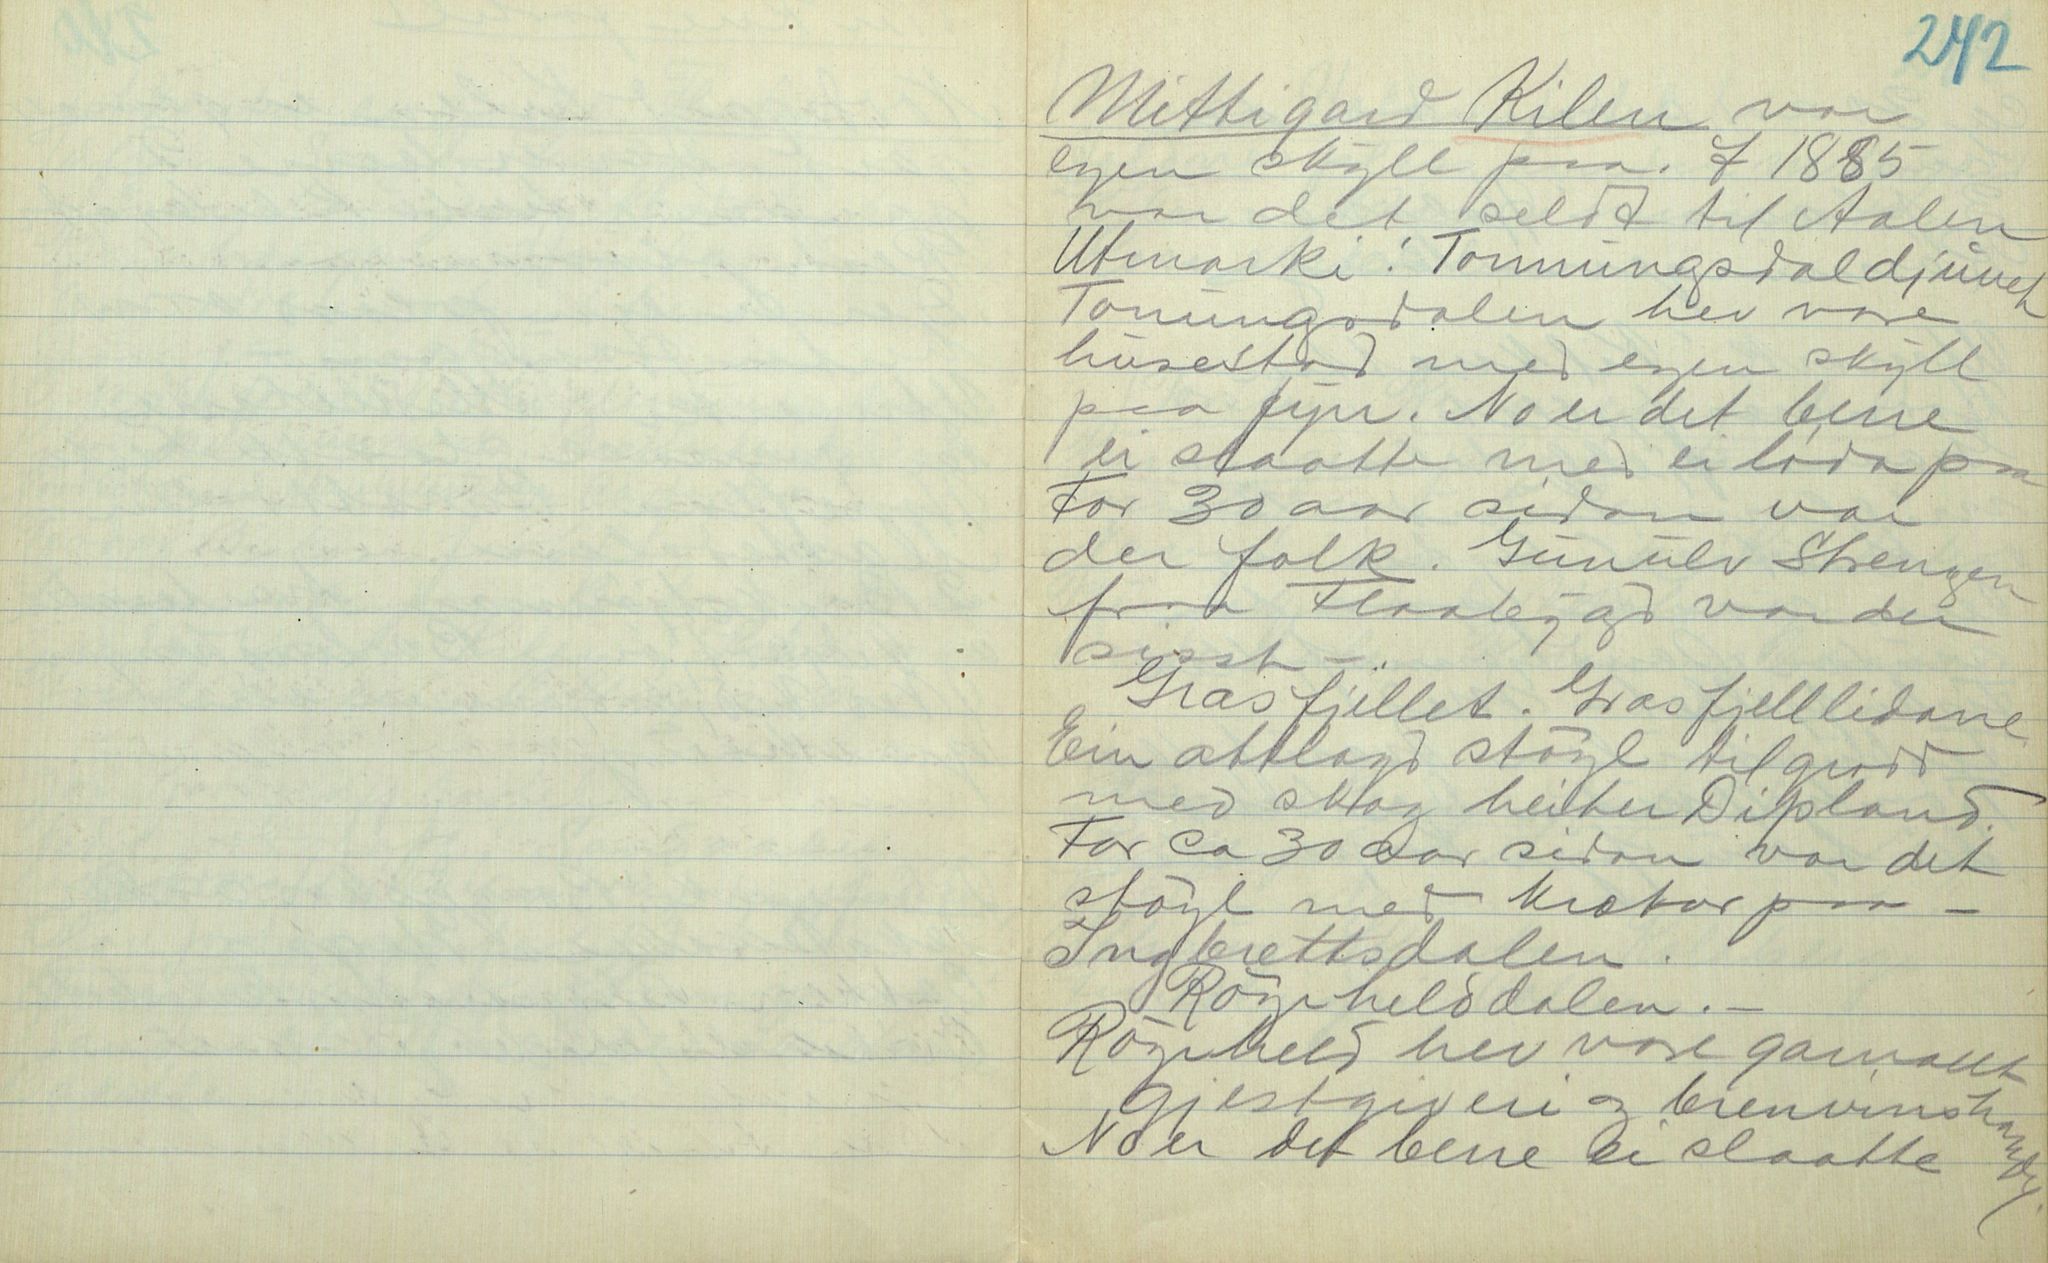 242
Mittigard Kilen var
egen skyll paa. I 1885
var det seldt til Aalen
Utmarki: Tonningsdaldjuvet
Toningsdalen hev vore
husestad med egen skyll
paa fyrr. No er det berre
ei slaatte med ei löda paa
For 30 aar sidan var
der folk. Gunulv Strengen
fraa Flaabygd var der
sisst –.
Grasfjellet. Grasfjelllidane
Ein attlagd stöyl tilgrodd
med skog heiter Dipland.
For ca 30 aar sidan var det
stöyl med krøtor paa –
Ingbrettsdalen.
Röyrhelddalen. –
Röyrheld hev vore gamallt
gjestgiveri og brenvinshandel.
No er det berre ei slaatte